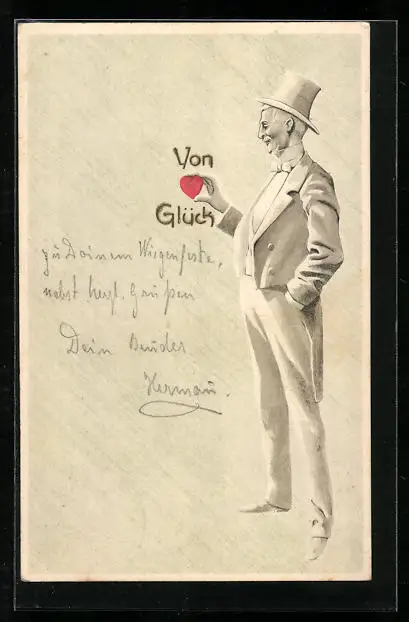 Von
Glück
zu Deinem Wiegenfeste,
nebst herzl. Grüßen
Dein Bruder
Hermann.